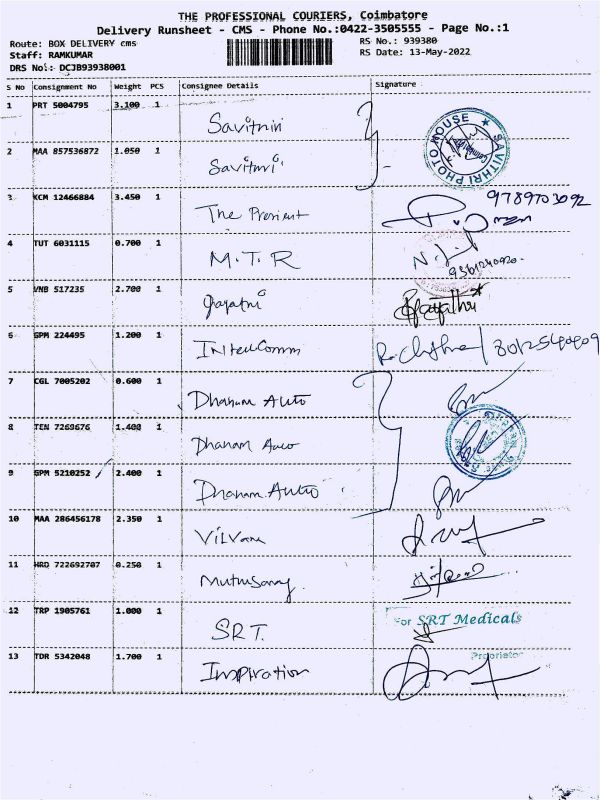 THE PROFESSIONAL COURIERS, Coimbatore
Delivery Runsheet - CMS - Phone No.:0422-3505555 - Page No.:1
Route: BOX DELIVERY cms
RS No.: 939380
Staff: RAMKUMAR
RS Date: 13-May-2022
DRS No.: DCJB93938001
S No Consignment No Weight PCS Consignee Details Signature
1 PRT 5004795 3.100 1 Savitriri
SAVITHRI PHOTO MOUSE
2 MAA 857536872 1.050 1 Savitri
3 KCM 12466884 3.450 1 The 9789703092
4 TUT 6031115 0.700 1 M.T.R 9361240920
5 VNB 517235 2.700 1 Gayatri Gayathri
6 GPM 224495 1.200 1 Intecomm
7 CGL 7005202 0.600 1 Dhanam Auto
8 TEN 7269676 1.400 1 Dhanam Auto
9 GPM 5210252 2.400 1 Dhanam Auto
10 MAA 286456178 2.350 1 Vilvam
11 HRD 722692707 0.250 1 Mutusamy
12 TRP 1905761 1.000 1 SRT. For SRT Medicals
Proprietor
13 TDR 5342048 1.700 1 Inspiration